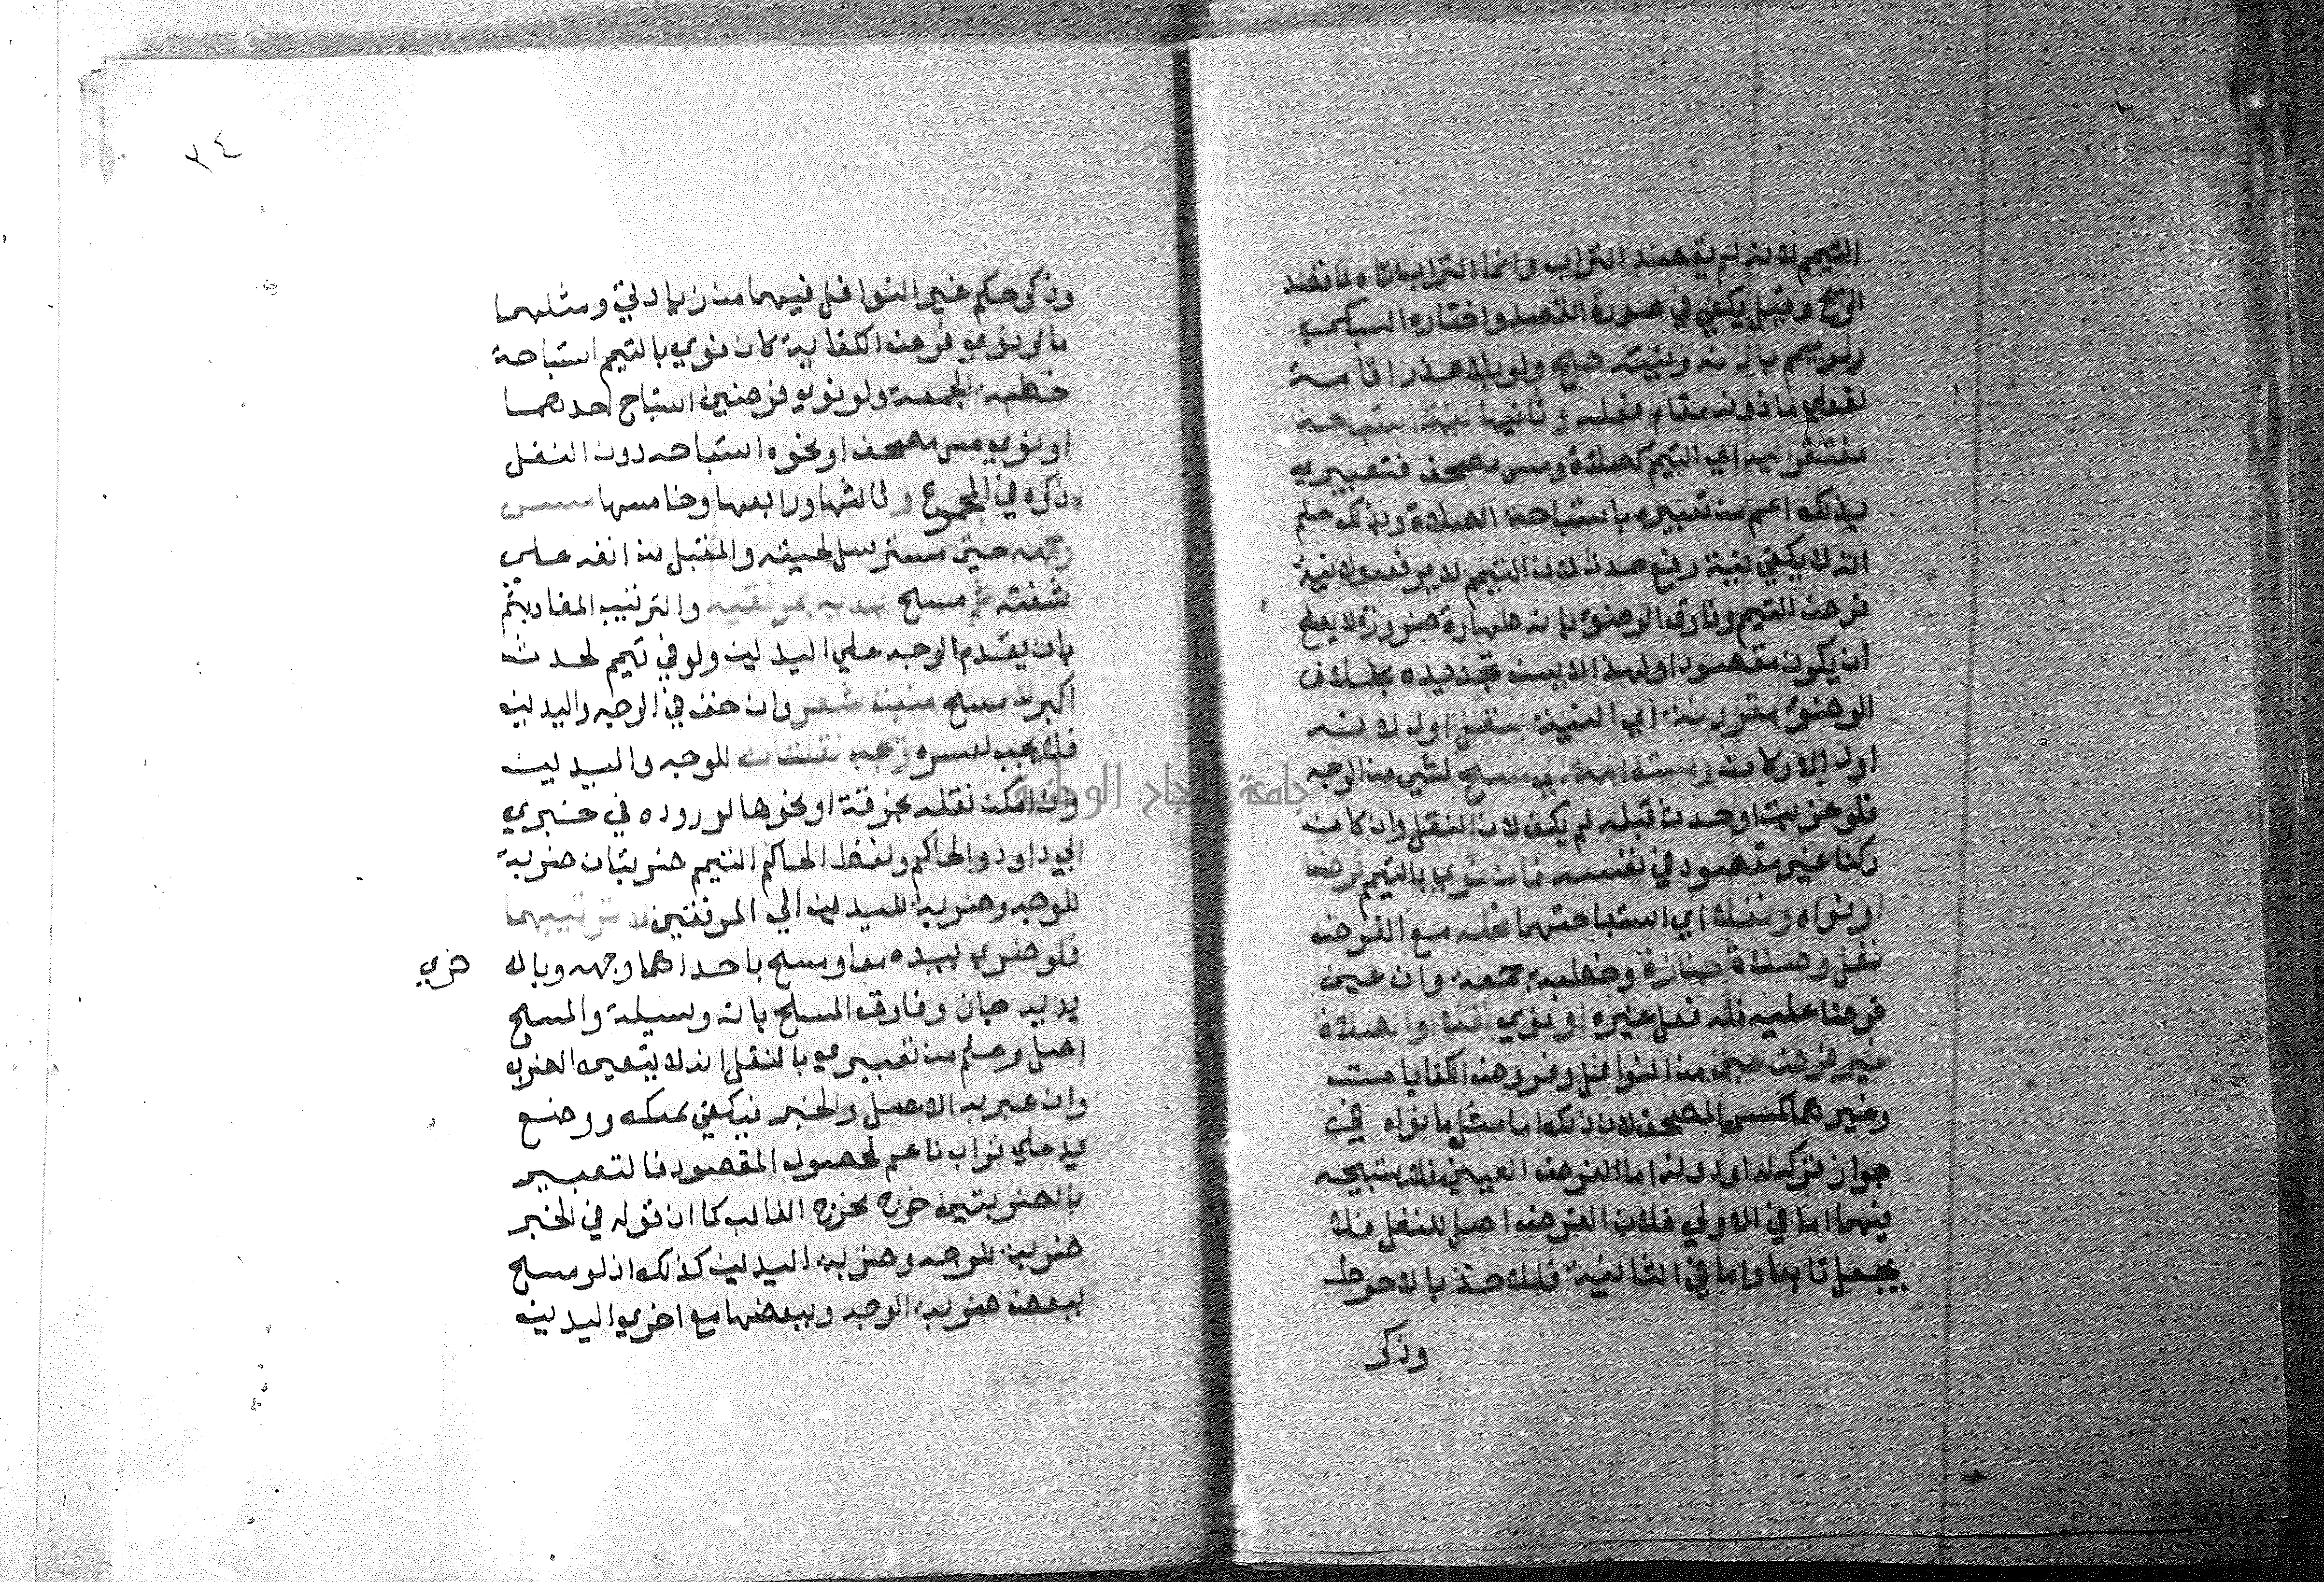 التيمم لانه لم يقصد التراب وانما التراب اتاه لما قصد
الريح وقيل يكفي في صورة القصد واختاره السبكي
ولو يمم باذنه ونيته صح ولو بلا عذر اقامة
لفعل ماذونه مقام فعله وثانيها نية استباحة
مفتقر اليه اي التيمم كصلاة ومس مصحف فتعبيري
بذلك اعم من تعبيره باستباحة الصلاة وبذلك علم
انه لا يكفي نية رفع حدث لان التيمم لا يرفعه ولا نية
فرض التيمم وفارق الوضوء بانه طهارة ضرورة لا يصلح
ان يكون مقصودا ولهذا لا يسن تجديده بخلاف
الوضوء مقرونة اي النية بنقل اول لانه
اول الاركان ومستدامة الي مسح لشي من الوجه
فلو عزبت او حدث قبله لم يكف لان النقل وان كان
ركنا غير مقصود في نفسه فان نوي بالتيمم فرضا
او نواه ونفلا اي استباحتهما فله مع الفرض
نفل وصلاة جنازة وخطبة جمعة وان عين
فرضا عليه فله فعل غيره او نوي نفلا او الصلاة
غير فرض عين من النوافل وفروض الكفايات
وغيرهما كمس المصحف لان ذلك اما مثل ما نواه في
جواز تركه له او دونه اما الفرض العيني فلا يستبيحه
فيهما اما في الاولي فلان الفرض اصل للنفل فلا
يجعل تابعا واما في الثانية فللاخذ بالاحوط
وذكر
٣٤
وذكر حكم غير النوافل فيهما من زيادتي ومثلهما
ما لو نوي فرض الكفاية كان نوي بالتيمم استباحة
خطبة الجمعة ولو نوي فرضين استباح احدهما
او نوي مس مصحف او نحوه استباحه دون النفل
ذكره في المجموع وثالثها ورابعها وخامسها مسح
وجهه حتي مسترسل لحيته والمقبل من انفه علي
شفته ثم مسح يديه بمرفقيه والترتيب المفاد بثم
بان يقدم الوجه علي اليدين ولو في تيمم لحدث
اكبر لا مسح منبت شعر وان خف في الوجه واليدين
فلا يجب لعسره وتجب نقلتان للوجه واليدين
وان امكن نقله بخرقة او نحوها لوروده في خبري
ابي داود والحاكم ولفظ الحاكم التيمم ضربتان ضربة
للوجه وضربة لليدين الي المرفقين لا ترتيبهما
فلو ضرب بيديه معا ومسح باحداهما وجهه وبالا
خري
يد يده جاز وفارق المسح بانه وسيلة والمسح
اصل وعلم من تعبيري بالنقل انه لا يتعين الضرب
وان عبر به الاصل والخبر فيكفي تمعكه ووضع
يد علي تراب ناعم لحصول المقصود فالتعبير
بالضربتين خرج مخرج الغالب كما ان قوله في الخبر
ضربة للوجه وضربة اليدين كذلك اذ لو مسح
ببعض ضربة الوجه وببعضها مع اخري اليدين
جامعة النجاح الوطنية